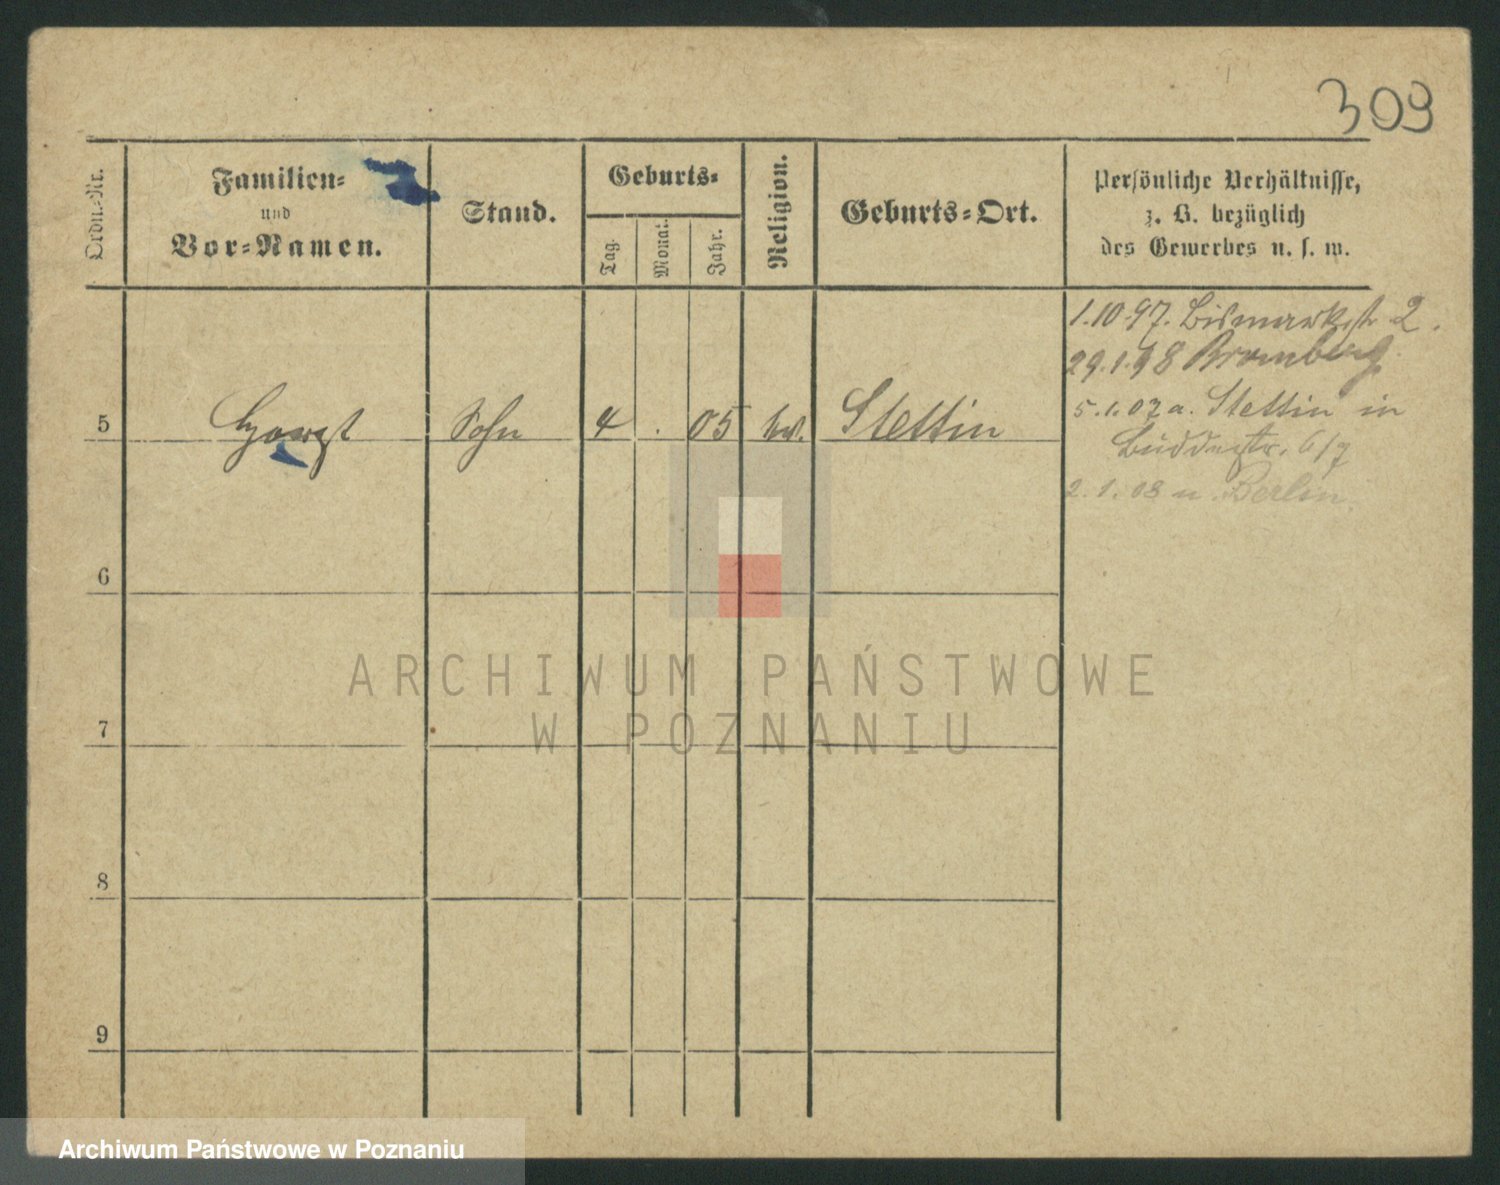 309
Ordn.-Nr.
Familien-
und
Vor-Namen.
Stand.
Geburts-
Tag.
Monat.
Jahr.
Religion.
Geburts-Ort.
Persönliche Verhältnisse,
z. B. bezüglich
des Gewerbes u. s. w.
1.10.97. Bismarkstr 2.
29.1.98 Bromberg.
5 Horst Sohn 4 . 05 Stettin
5.1.07 a. Stettin in
6/7
2.1.08 n. Berlin.
6
7
8
9
ARCHIWUM PAŃSTWOWE
W POZNANIU
Archiwum Państwowe w Poznaniu